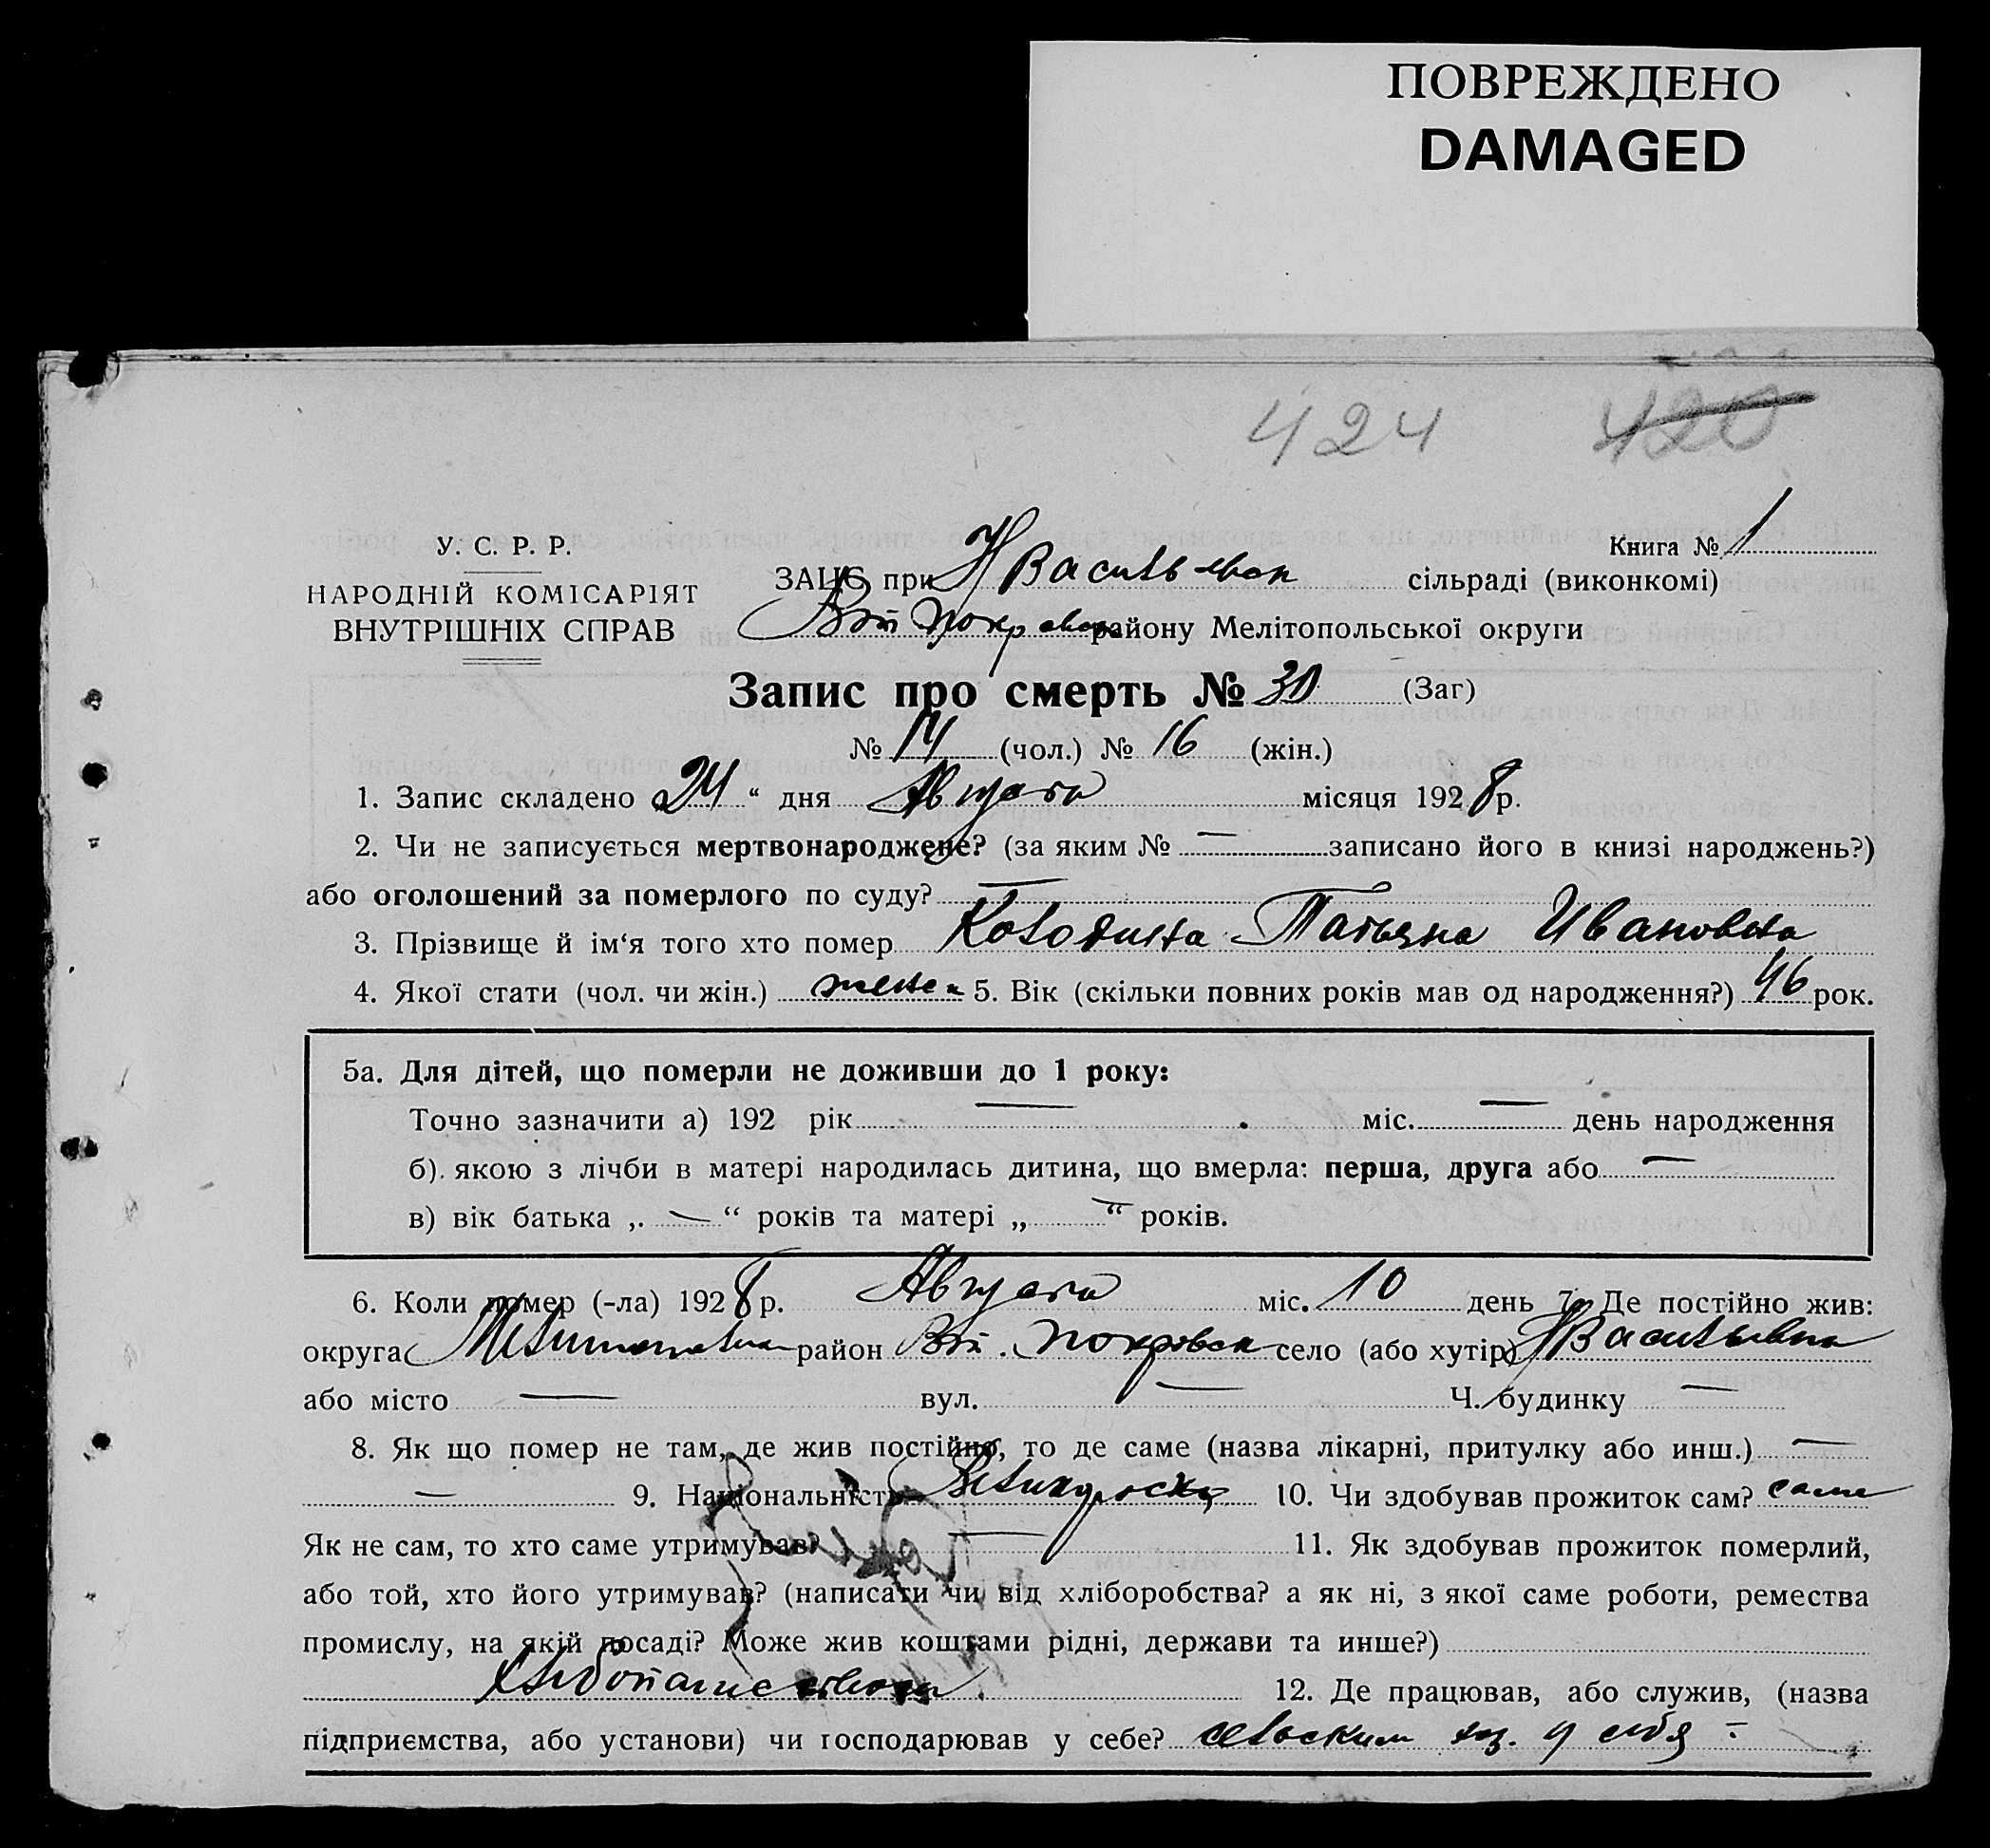 ПОВРЕЖДЕНО
DAMAGED
424 420
У. С. Р. Р.
НАРОДНІЙ КОМІСАРІЯТ
ВНУТРІШНІХ СПРАВ
Книга № 1
ЗАЦС при Н Васильевск сільраді (виконкомі)
району Мелітопольської округи
Запис про смерть № 30 (Заг)
№ 14 (чол.) № 16 (жін.)
1. Запис складено 24 “ дня Августа місяця 1928 р.
2. Чи не записується мертвонароджене? (за яким № — записано його в книзі народжень?)
або оголошений за померлого по суду? —
3. Прізвище й ім‘я того хто помер Татьяна Ивановна
4. Якої стати (чол. чи жін.) женск 5. Вік (скільки повних років мав од народження?) 46 рок.
5а. Для дітей, що померли не доживши до 1 року:
Точно зазначити а) 192 рік — міс. — день народження
б). якою з лічби в матері народилась дитина, що вмерла: перша, друга або —
в) вік батька „. — “ років та матері „ — “ років.
6. Коли помер (-ла) 1928 р. Августа міс. 10 день 7. Де постійно жив:
округа район Вт. Покровск село (або хутір) Н Васильевка
або місто — вул. — Ч. будинку —
8. Як що помер не там, де жив постійно, то де саме (назва лікарні, притулку або инш.) —
— 9. Національність 10. Чи здобував прожиток сам? сама
Як не сам, то хто саме утримував? — 11. Як здобував прожиток померлий,
або той, хто його утримував? (написати чи від хліборобства? а як ні, з якої саме роботи, ремества
промислу, на якій посаді? Може жив коштами рідні, держави та инше?)
12. Де працював, або служив, (назва
підприємства, або установи) чи господарював у себе? сельским хоз. у себя —